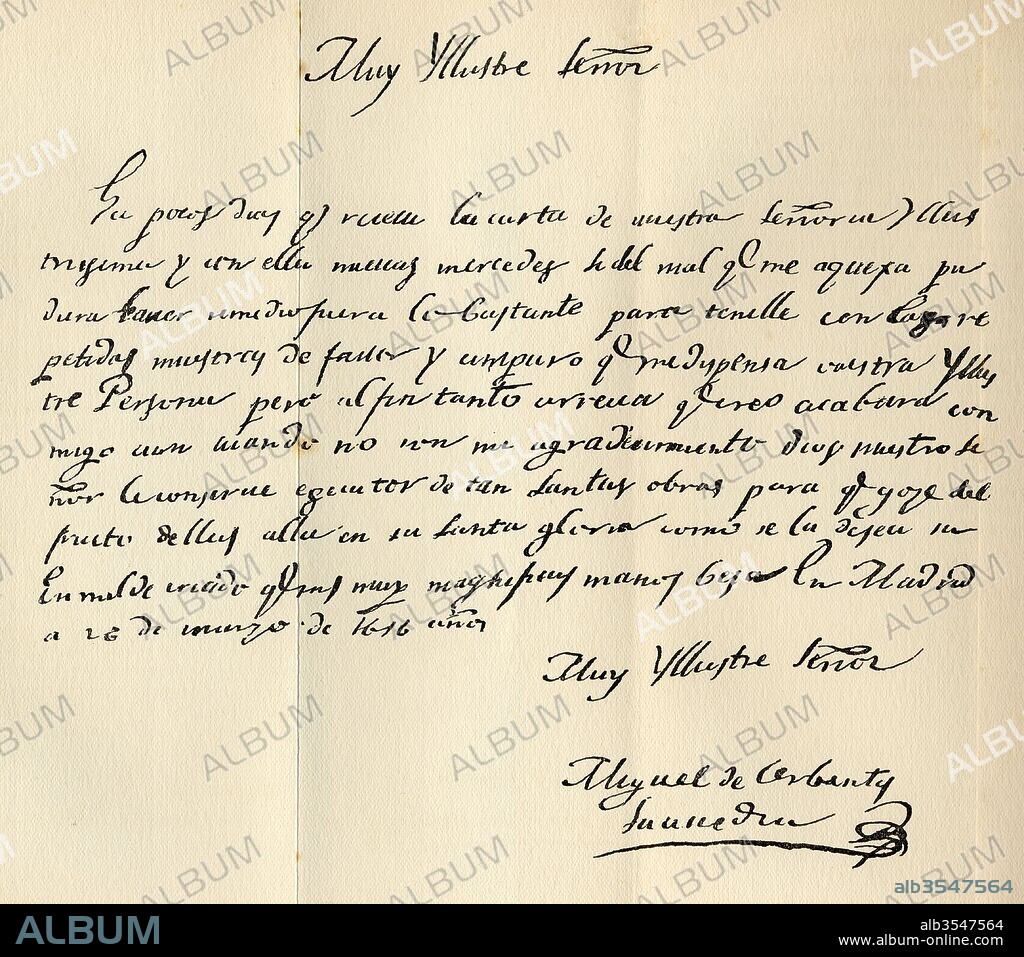 Muy Yllustre señor
Ha pocos dias q̃ receui la carta de vuestra señoria Yllus
trisima y con ella nuevas mercedes si del mal q̃ me aquexa pu
diera hauer remedio fuera lo bastante para tenelle con las re
petidas muestras de fauor y amparo q̃ me dispensa vuestra Yllus
tre Persona pero al fin tanto arrecia q̃ creo acabara con
migo aun cuando no con mi agradecimiento Dios nuestro se
ñor le conserue egecutor de tan santas obras para q̃ goze del
fruto dellas alla en su santa gloria como se la desea su
humilde criado q̃ sus muy magnificas manos besa En Madrid
a 26 de marzo de 1616 años
Muy Yllustre señor
Miguel de Cerbantes
Saauedra
ALBUM
alb3547564
ALBUM
alb3547564
www.album-online.com